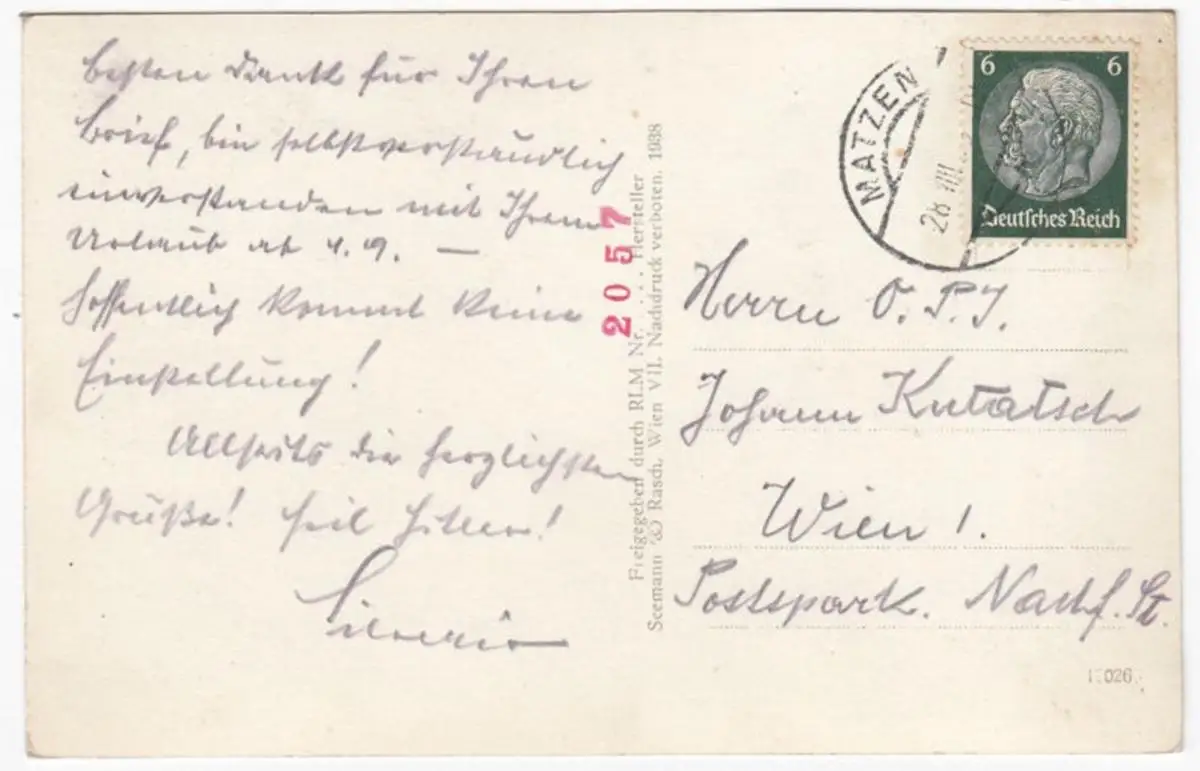 Besten Dank für Ihren
Brief, bin selbstverständlich
einverstanden mit Ihrem
Urlaub ab 4. 9. —
Hoffentlich kommt keine
Einstellung!
Allseits die herzlichsten
Grüße! Heil Hitler!
2057
Freigegeben durch RLM Nr. . . . Hersteller
Seemann & Rasch, Wien VII. Nachdruck verboten. 1938
MATZEN
28 VIII
6 6
Deutsches Reich
Herrn O. P. I.
Johann Kutatsch
Wien 1.
Postspark. Nachf. St.
026